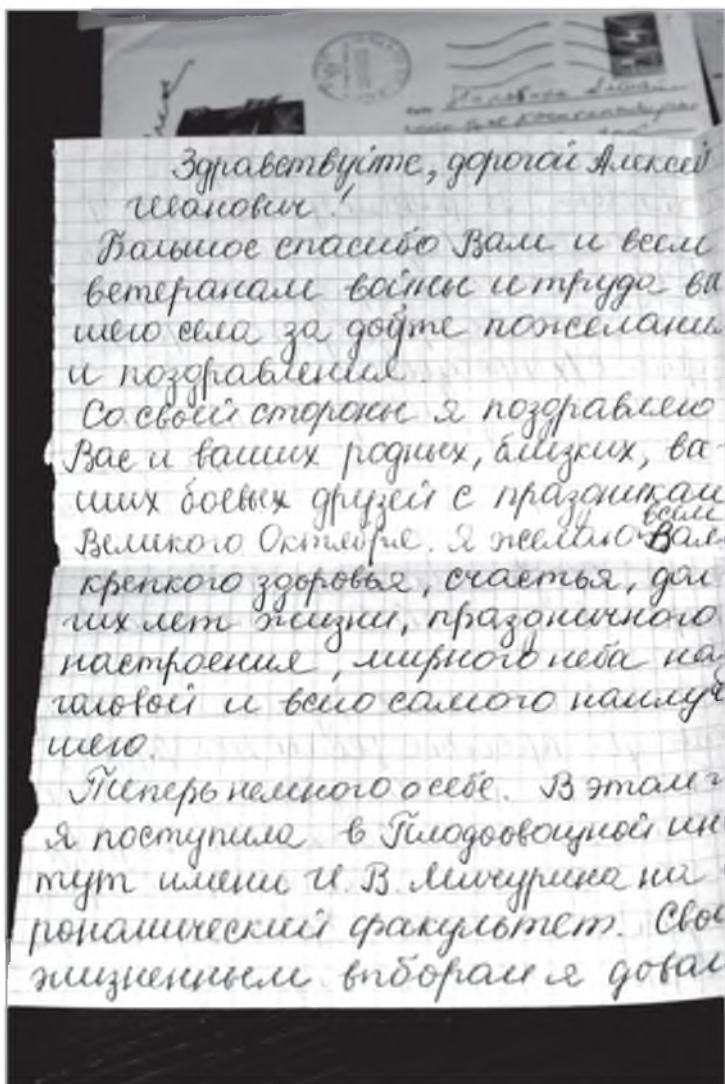 Здравствуйте, дорогой Алексей
Иванович!
Большое спасибо Вам и всем
ветеранам войны и труда ва
шего села за добрые пожелани
и поздравления.
Со своей стороны я поздравляю
Вас и ваших родных, близких, ва-
ших боевых друзей с праздникам
всем
Великого Октября. Я желаю Вам
крепкого здоровья, счастья, дол
гих лет жизни, праздничного
настроения, мирного неба на
головой и всего самого наилуч
шего.
Теперь немного о себе. В этом г
я поступила в Плодоовощной ин
тут имени И. В. Мичурина на
рономический факультет. Сво
жизненным выборам я довол